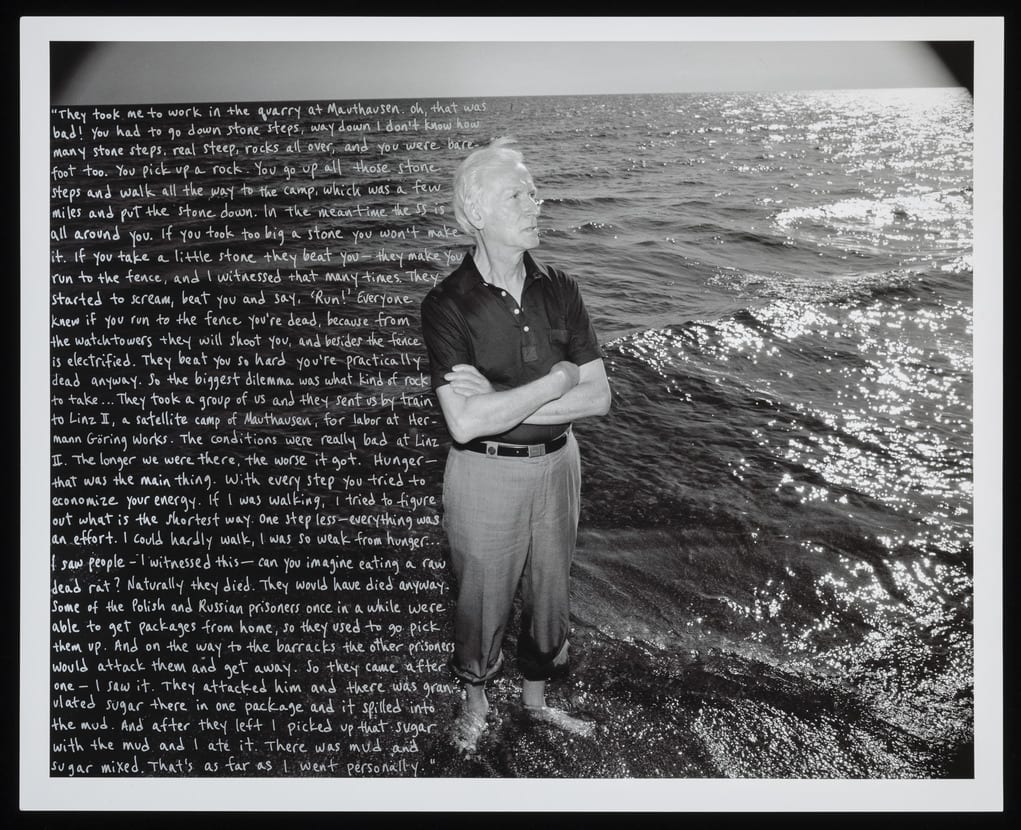 "They took me to work in the quarry at Mauthausen. Oh, that was
bad! You had to go down stone steps, way down I don't know how
many stone steps, real steep, rocks all over, and you were bare-
foot too. You pick up a rock. You go up all those stone
steps and walk all the way to the camp, which was a few
miles and put the stone down. In the meantime the SS is
all around you. If you took too big a stone you won't make
it. If you take a little stone they beat you — they make you
run to the fence, and I witnessed that many times. They
started to scream, beat you and say, 'Run!' Everyone
knew if you run to the fence you're dead, because from
the watchtowers they will shoot you, and besides the fence
is electrified. They beat you so hard you're practically
dead anyway. So the biggest dilemma was what kind of rock
to take...They took a group of us and they sent us by train
to Linz II, a satellite camp of Mauthausen, for labor at Her-
mann Göring Works. The conditions were really bad at Linz
II. The longer we were there, the worse it got. Hunger —
that was the main thing. With every step you tried to
economize your energy. If I was walking, I tried to figure
out what is the shortest way. One step less — everything was
an effort. I could hardly walk, I was so weak from hunger...
I saw people — I witnessed this — can you imagine eating a raw
dead rat? Naturally they died. They would have died anyway.
Some of the Polish and Russian prisoners once in a while were
able to get packages from home, so they used to go pick
them up. And on the way to the barracks the other prisoners
would attack them and get away. So they came after
one — I saw it. They attacked him and there was gran-
ulated sugar there in one package and it spilled into
the mud. And after they left I picked up that sugar
with the mud and I ate it. There was mud and
sugar mixed. That's as far as I went personally."